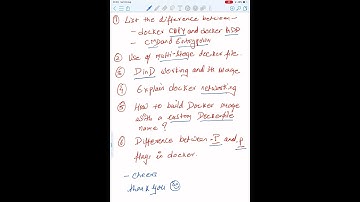 ① List the difference between -
- docker COPY and docker ADD
- CMD and Entrypoint
② Use of multi-stage docker file.
③ DinD working and its usage
④ Explain docker networking
⑤ How to build Docker image
with a custom Dockerfile
name?
⑥ Difference between -P and -p
flags in docker.
- cheers
thank you